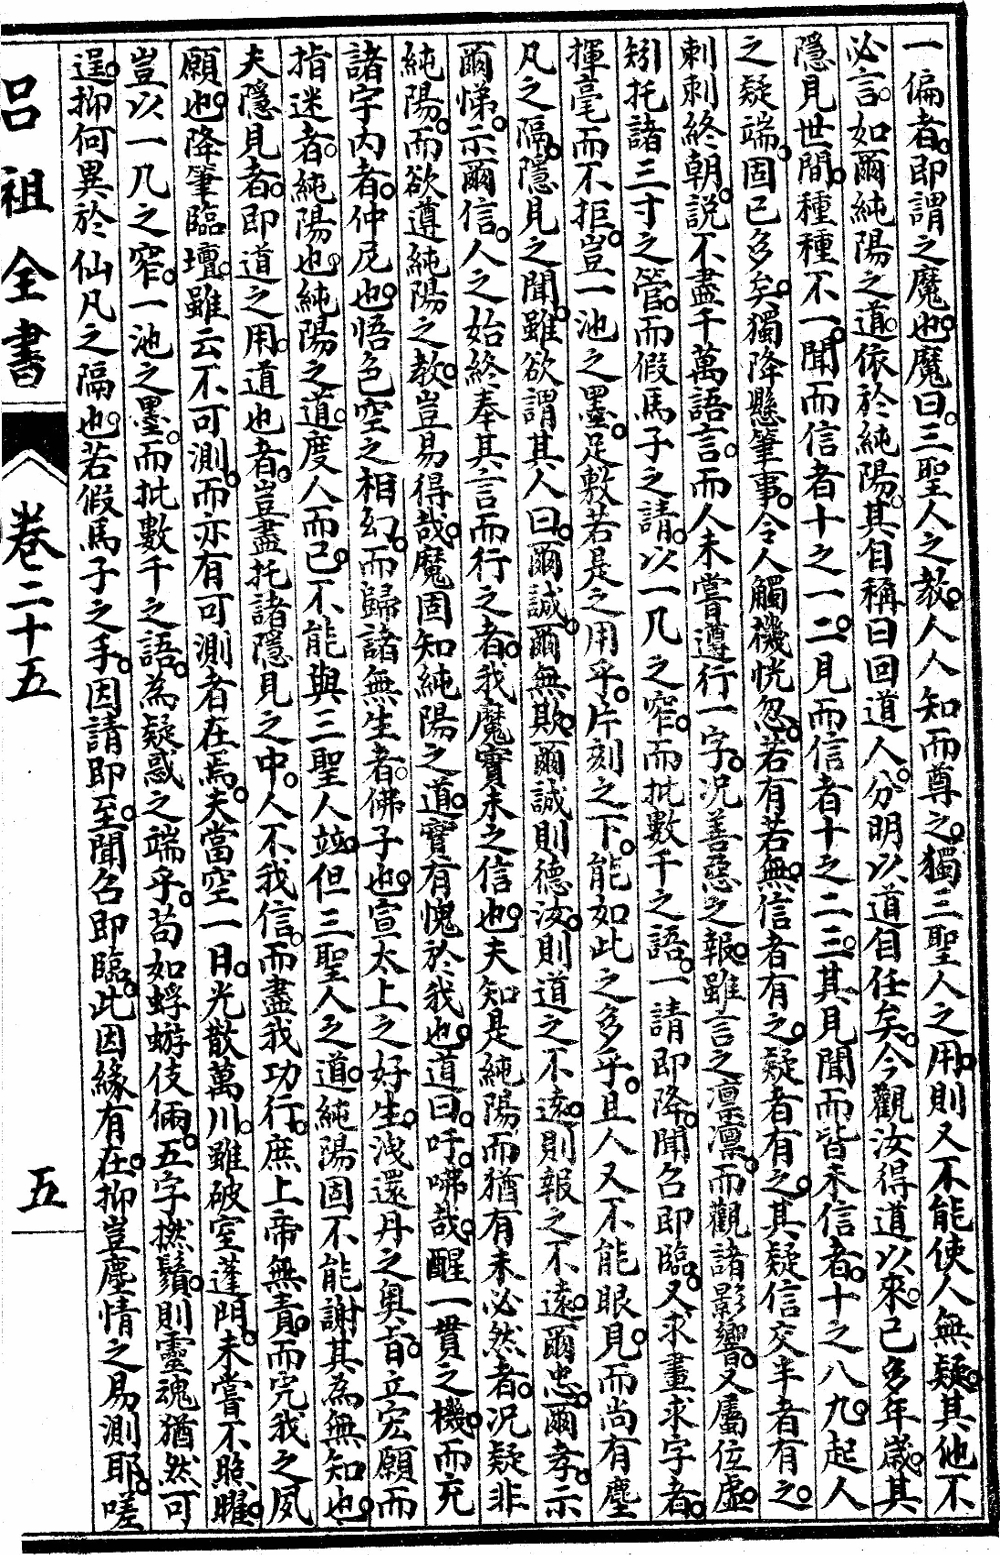 一偏者。即謂之魔也。魔曰。三聖人之教。人人知而尊之。獨三聖人之用。則又不能使人無疑。其他不
必言。如爾純陽之道。依於純陽。其自稱曰回道人。分明以道自任矣。今觀汝得道以來。已多年歲。其
隱見世間。種種不一。聞而信者十之一二。見而信者十之二三。其見聞而皆未信者。十之八九。起人
之疑端。固已多矣。獨降懸筆事。令人觸機恍忽。若有若無。信者有之。疑者有之。其疑信交半者有之。
刺刺終朝。說不盡千萬語言。而人未嘗遵行一字。況善惡之報。雖言之凜凜。而觀諸影響。又屬位虛。
矧托諸三寸之管。而假馬子之請。以一几之窄。而批數千之語。一請即降。聞召即臨。又求畫求字者。
揮毫而不拒。豈一池之墨。足敷若是之用乎。片刻之下。能如此之多乎。且人又不能眼見。而尚有塵
凡之隔。隱見之聞。雖欲謂其人曰。爾誠爾無欺。爾誠則德汝。則道之不遠。則報之不遠。爾忠。爾孝。示
爾悌。示爾信。人之始終奉其言而行之者。我魔實未之信也。夫知是純陽而猶有未必然者。況疑非
純陽。而欲遵純陽之教。豈易得哉。魔固知純陽之道。實有愧於我也。道曰。吁。嘻哉。醒一貫之機。而充
諸字內者。仲尼也。悟色空之相幻。而歸諸無生者。佛子也。宣太上之好生。洩還丹之奧旨。立宏願而
指迷者。純陽也。純陽之道。度人而已。不能與三聖人竝。但三聖人之道。純陽固不能謝其為無知也。
夫隱見者。即道之用。道也者。豈盡托諸隱見之中。人不我信。而盡我功行。庶上帝無責。而完我之夙
願也。降筆臨壇。雖云不可測。而亦有可測者在焉。夫當空一日。光散萬川。雖破室蓬門。未嘗不照耀。
豈以一几之窄。一池之墨。而批數千之語。為疑惑之端乎。苟如蜉蝣伎倆。五字撚鬚。則靈魂猶然可
逞。抑何異於仙凡之隔也。若假馬子之手。因請即至。聞召即臨。此因緣有在。抑豈塵情之易測耶。嗟
呂祖全書
卷二十五
五